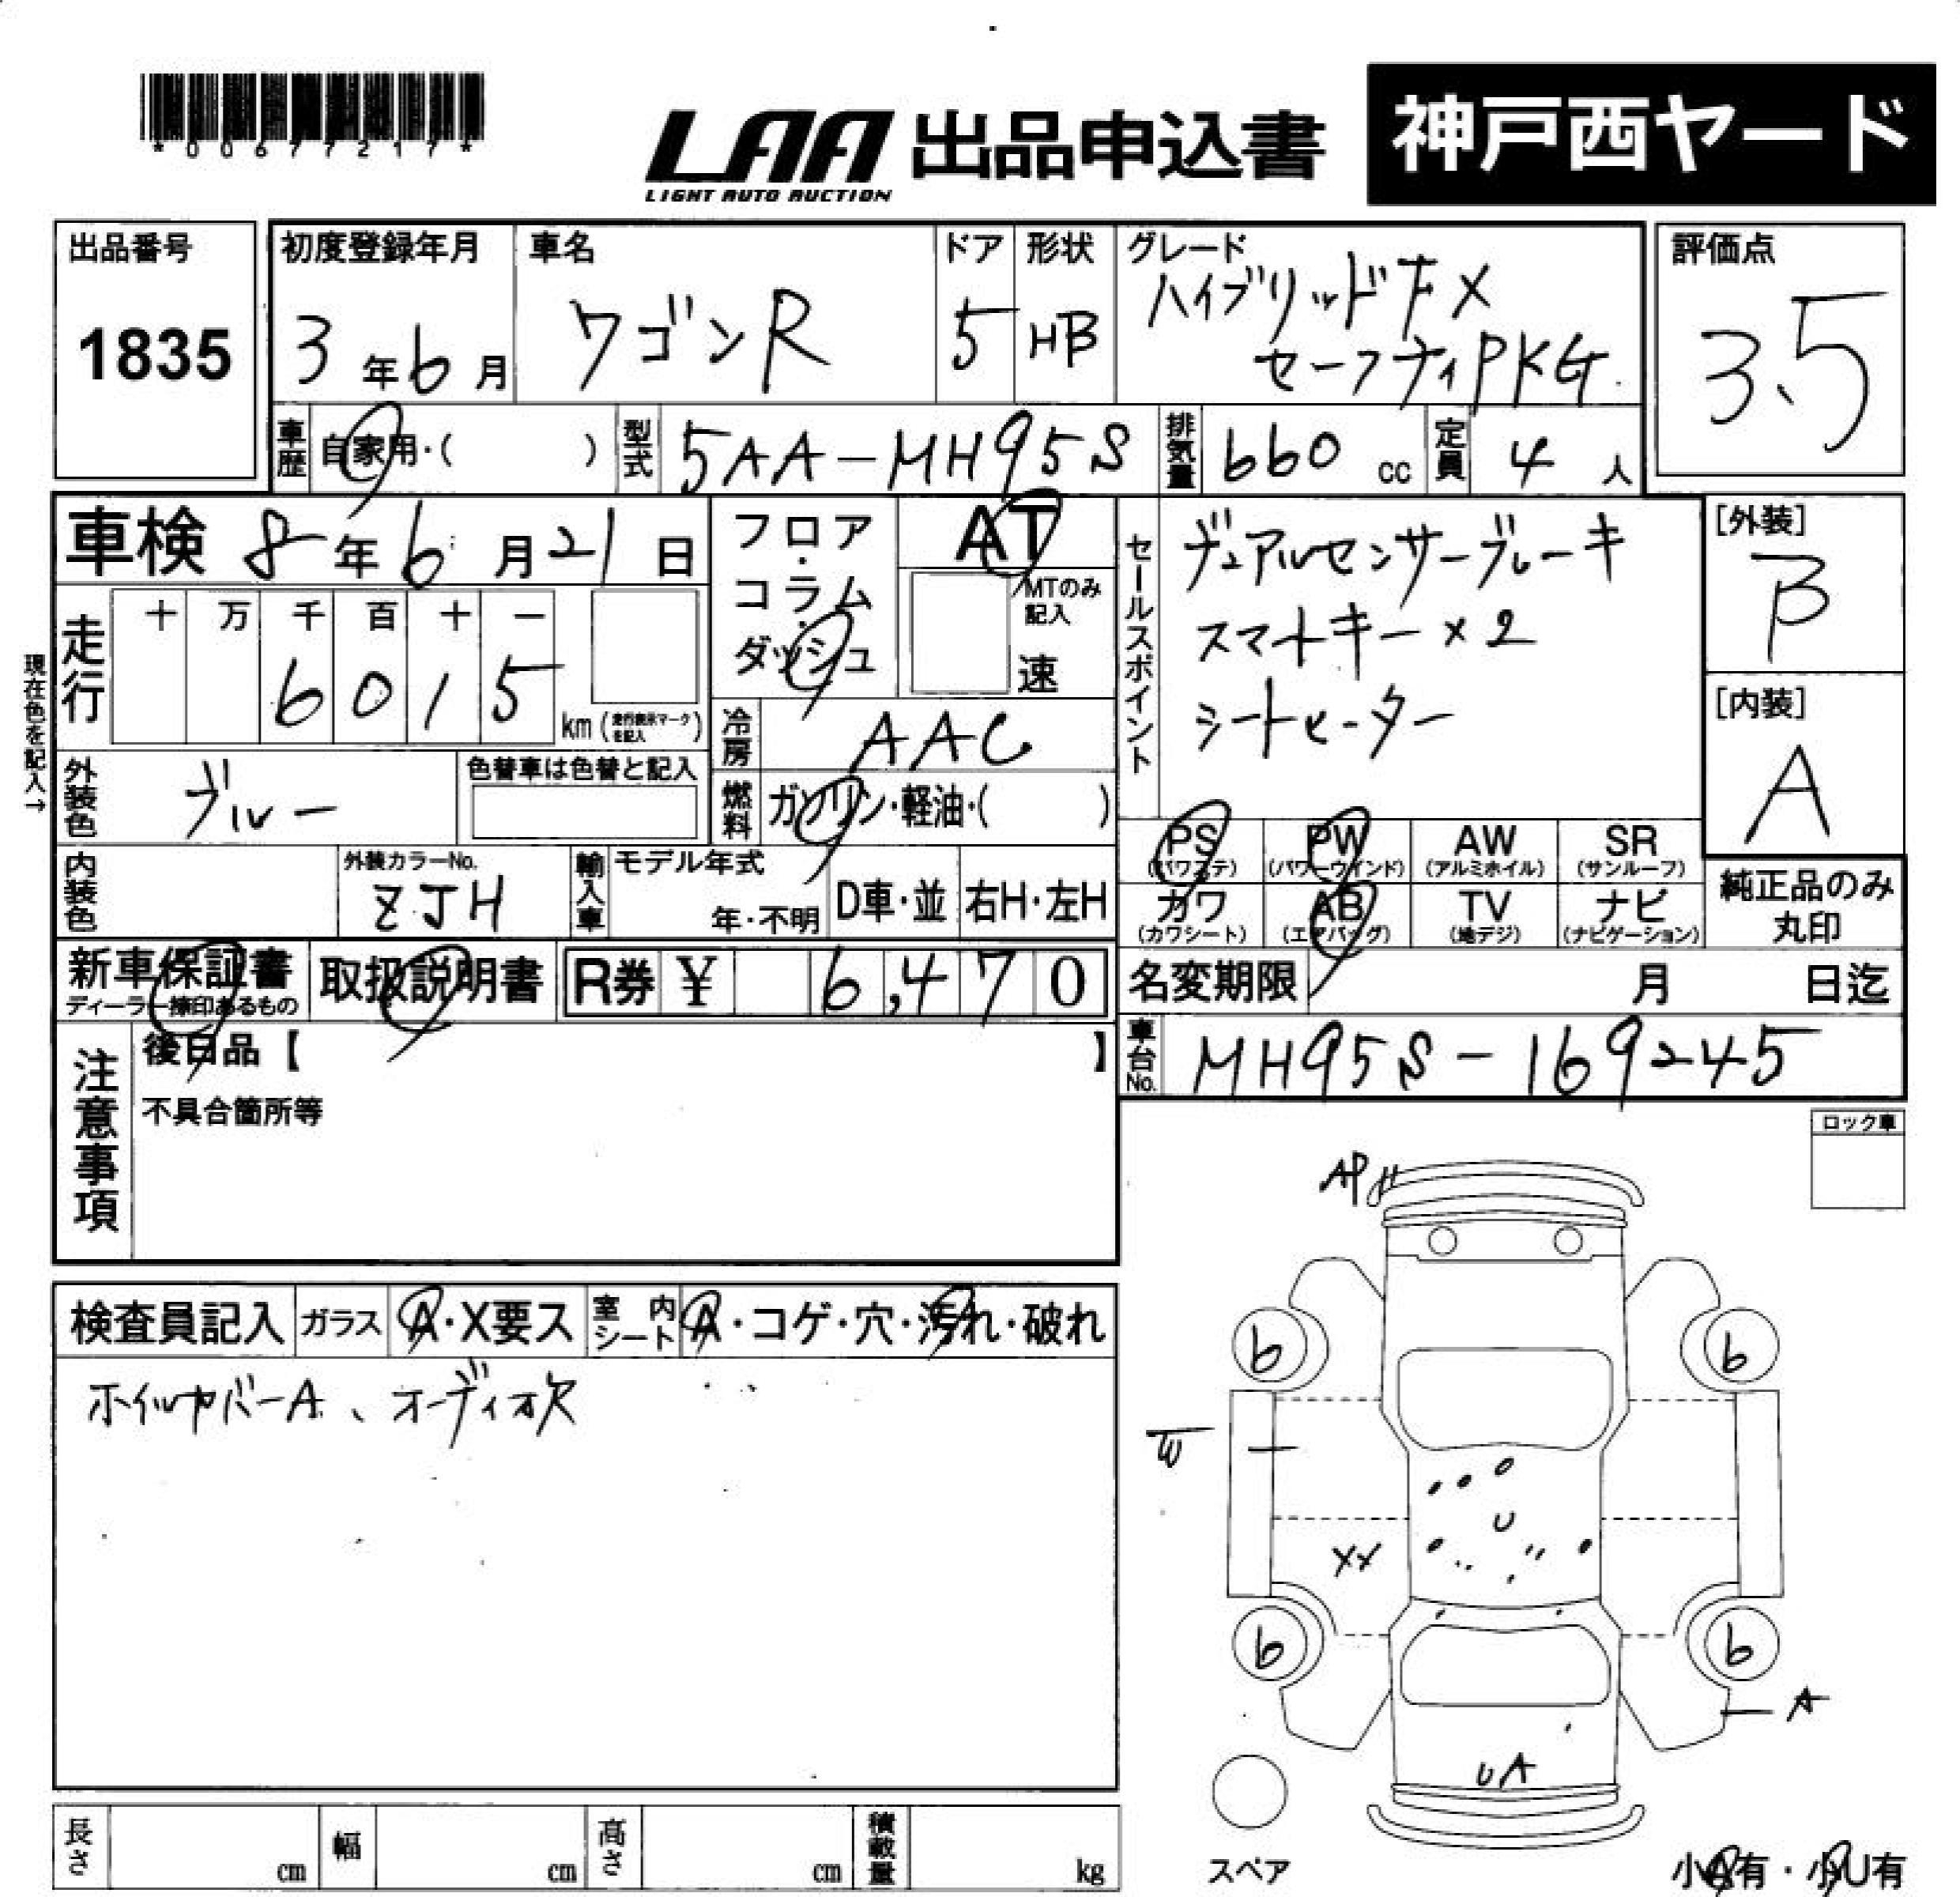 *00677217*
LAA 出品申込書 神戸西ヤード
LIGHT AUTO AUCTION
出品番号
1835
初度登録年月
3年6月
車名
ワゴンR
ドア
5
形状
HB
グレード
ハイブリッドFX
セーフティPKG
評価点
3.5
車歴
自家用・( )
型式
5AA-MH95S
排気量
660 cc
定員
4人
車検 8年6月21日
フロア・コラム・ダッシュ
AT
MTのみ記入
速
セールスポイント
デュアルセンサーブレーキ
スマートキー×2
シートヒーター
[外装]
B
[内装]
A
現在色を記入→
走行
十 万 千 百 十 一
6 0 1 5
km (走行表示マークを記入)
冷房
AAC
燃料
ガソリン・軽油・( )
外装色
ブルー
色替車は色替と記入
内装色
外装カラーNo.
ZJH
輸入車
モデル年式
年・不明
D車・並
右H・左H
PS
(パワステ)
PW
(パワーウインド)
AW
(アルミホイル)
SR
(サンルーフ)
カワ
(カワシート)
AB
(エアバッグ)
TV
(地デジ)
ナビ
(ナビゲーション)
純正品のみ
丸印
新車保証書
ディーラー捺印あるもの
取扱説明書
R券 ¥ 6,470
名変期限 月 日迄
注意事項
後日品【 】
不具合箇所等
車台No.
MH95S-169245
ロック車
検査員記入
ガラス
A・X要ス
室内シート
A・コゲ・穴・汚れ・破れ
ホイルカバーA、オーディオ欠
AP
6 6
W
U
XX
6 6
A
UA
スペア
小A有・小U有
長さ cm
幅 cm
高さ cm
積載量 kg